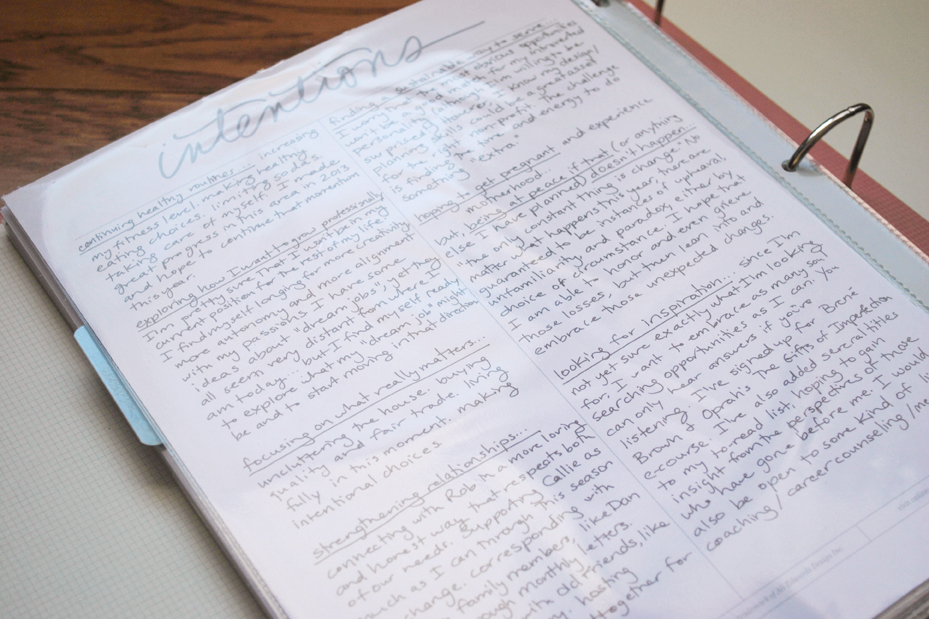 intentions
continuing healthy routines... increasing
my fitness level, making healthy
eating choices, limiting sodas,
taking care of myself. I made
great progress in this area in 2013
and hope to continue that momentum
this year.
exploring how I want to grow professionally
I'm pretty sure that I won't be in my
current position for the rest of my life.
I find myself longing for more creativity
more autonomy and more alignment
with my passions. I have some
ideas about "dream jobs", yet they
all seem very distant from where I
am today... but I find myself ready
to explore what my "dream job" might
be and to start moving in that direction
focusing on what really matters...
uncluttering the house, buying
quality and fair trade, living
fully in this moment, making
intentional choices.
strengthening relationships...
connecting with Rob in a more loving
and honest way that respects both
of our needs. Supporting Callie as
much as I can through this season
of change. corresponding with
family members, like Dan
through monthly letters.
with old friends, like
hosting
together for
finding a sustainable way to serve...
I want to
won't be obvious opportunities
for my introverted
I'm willing to be
surprised! However, I know my design/
planning skills could be a great asset
for the right non profit. The challenge
is finding the time and energy to do
something "extra."
hoping to get pregnant and experience
motherhood...
but, being at peace if that (or anything
else I have planned) doesn't happen...
"the only constant thing is change." No
matter what happens this year, there are
guaranteed to be instances of upheaval,
unfamiliarity and paradox, either by
choice or circumstance. I hope that
I am able to honor and even grieve
those losses, but then lean into and
embrace those unexpected changes.
looking for inspiration... since I'm
not yet sure exactly what I'm looking
for, I want to embrace as many soul
searching opportunities as I can. You
can only hear answers if you're
listening. I've signed up for Brené
Brown & Oprah's The Gifts of Imperfection
ecourse. I've also added several titles
to my to-read list, hoping to gain
insight from the perspectives of those
who have gone before me. I would
also be open to some kind of
coaching / career counseling /